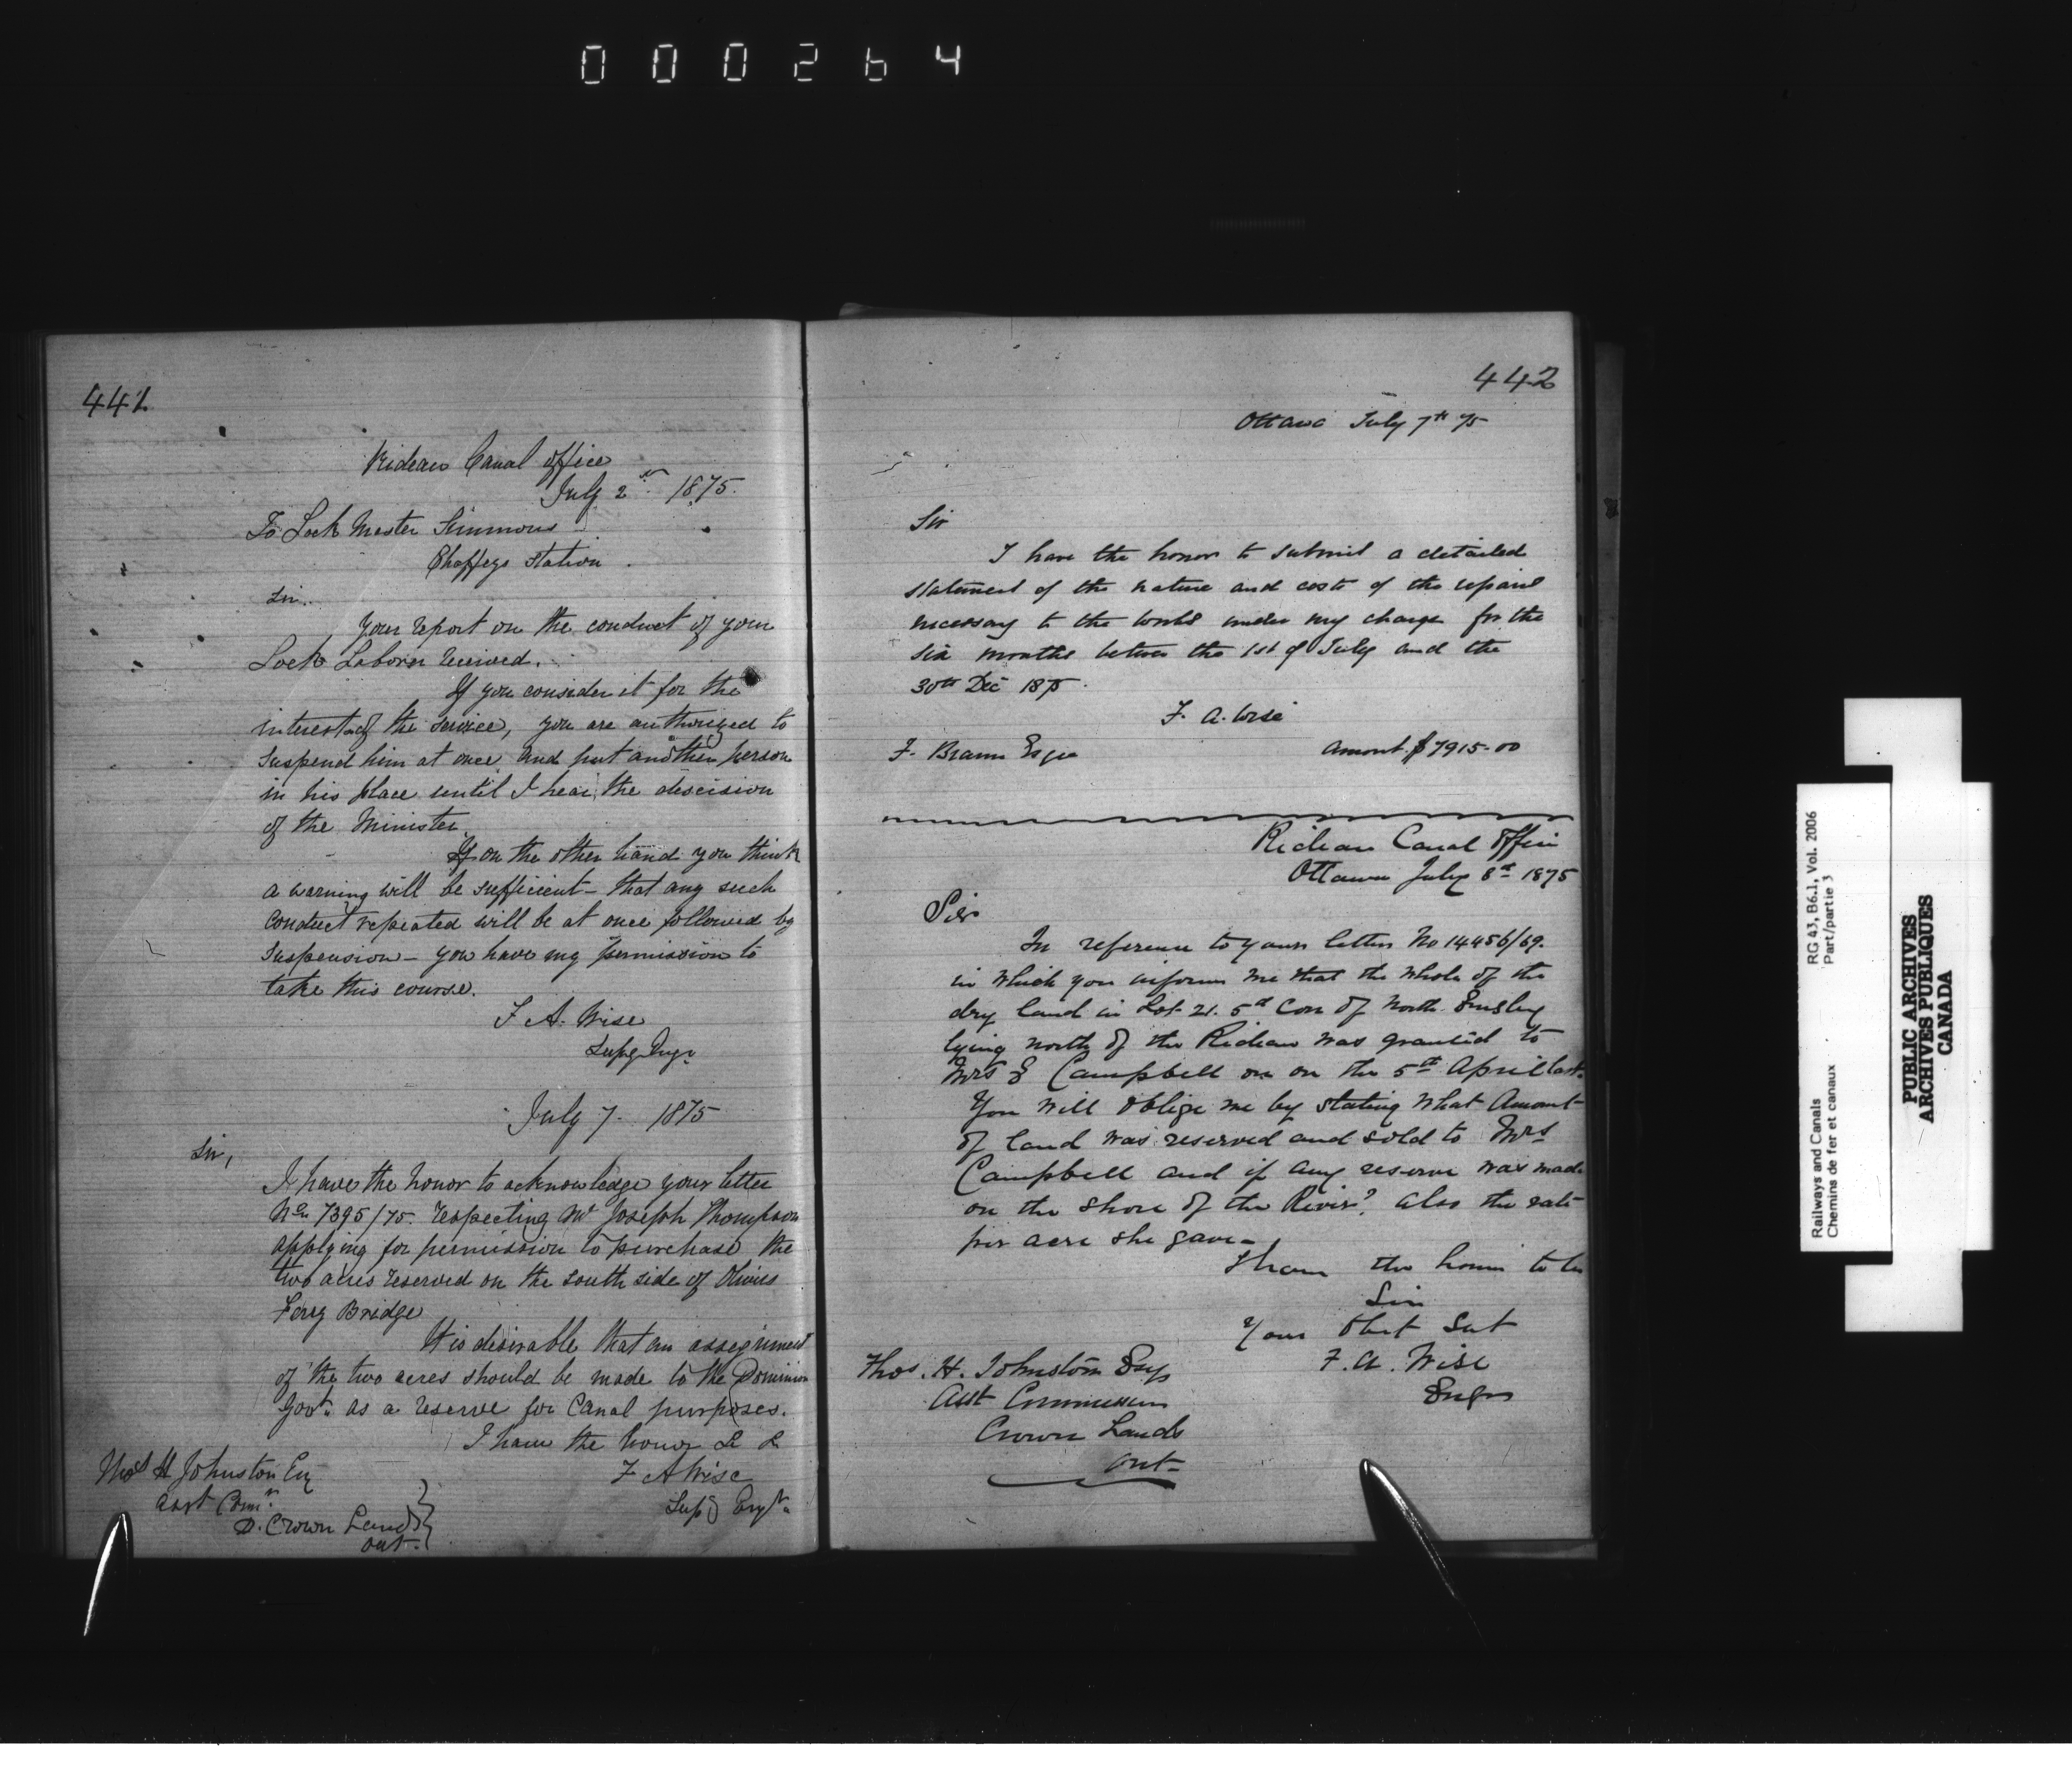 000264
441
Rideau Canal Office
July 2nd 1875.
To Lock Master Simmons
Chaffeys Station.
Sir.
Your report on the conduct of your
Lock Laborer received.
If you consider it for the
interest of the service, you are authorized to
suspend him at once and put another person
in his place until I hear the descision
of the Minister.
If on the other hand you think
a warning will be sufficient - that any such
conduct repeated will be at once followed by
suspension - you have my permission to
take this course.
F A. Wise
Supg Engr
July 7. 1875
Sir,
I have the honor to acknowledge your letter
No 7395/75. respecting Mr Joseph Thompson
applying for permission to purchase the
two acres reserved on the south side of Olivers
Ferry Bridge
It is desirable that an assignment
of the two acres should be made to the Dominion
Govt. as a reserve for Canal purposes.
I have the honor &c &c
F A Wise
Supg Engr.
Thos H Johnston Esq
Asst Comr.
D. Crown Lands
Ont.
442
Ottawa July 7th 75
Sir
I have the honor to submit a detailed
statement of the nature and costs of the repairs
necessary to the works under my charge for the
six months between the 1st of July and the
30th Dec 1875.
F. A. Wise
F. Braun Esqre
Amount $7915.00
Rideau Canal Office
Ottawa July 8th 1875
Sir
In reference to yours letter No 14456/69.
in which you inform me that the whole of the
dry land in Lot 21. 5th Con of North Emsley
lying north of the Rideau was granted to
Mrs E Campbell on on the 5th April last.
You will oblige me by stating what Amount
of land was reserved and sold to Mrs
Campbell and if any reserve was made
on the shore of the River? also the rate
per acre she gave -
I have the honor to be
Sir
Your Obt Sevt
F. A. Wise
Engr
Thos. H. Johnston Esq
Asst Commissioner
Crown Lands
Ont-
Railways and Canals
Chemins de fer et canaux
RG 43, B6.1, Vol. 2006
Part/partie 3
PUBLIC ARCHIVES
ARCHIVES PUBLIQUES
CANADA